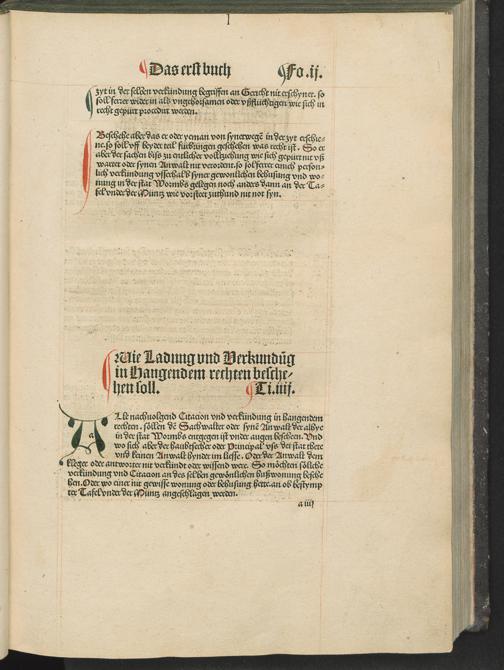 Das erst buch Fo.ij.
zyt in der selben verkündung begriffen an Gericht nit erschyner. so
soll ferrer wider in als vngehorsamen oder vßflüchtigen wie sich in
recht gepürt procedirt werden.
Beschehe aber das er oder yeman von synetwegē in der zyt erschie-
ne. so soll vff beyder teil fürbringen geschehen was recht ist. So er
aber der sachen biß zu entlicher vollziehung wie sich gepürt nit vß
warttet oder synen Anwalt nit verordent. so sol ferrer einich person-
lich verkündung vsserhalb syner gewonlichen behusung vnd wo-
nung in der stat Wormbs gelegen noch anders dann an der Ta-
fel vnder der Müntz wie vorsteet zuthund nit not syn.
Wie Ladung vnd Verkundūg
in Hangendem rechten besche-
hen soll. Ti.iiij.
ALle nachuolgend Citacion vnd verkündung in hangendem
rechten. söllen dē Sachwalter oder synē Anwalt der alhye
in der stat Wormbs entgegen ist vnder augen beschehen. Vnd
wo sich aber der haubtsecher oder Principal vß der stat thete
vnd keinen Anwalt hynder im liesse. Oder der Anwalt dem
kleger oder antworter nit verkündt oder wissend were. So möchten sölliche
verkündung vnd Citacion an des selben gewönlichen hußwonung besche
hen. Oder wo einer nit gewisse wonung oder behusung hette. an ob bestymp
ter Tafel vnder der Müntz angeschlagen werden.
a iiij